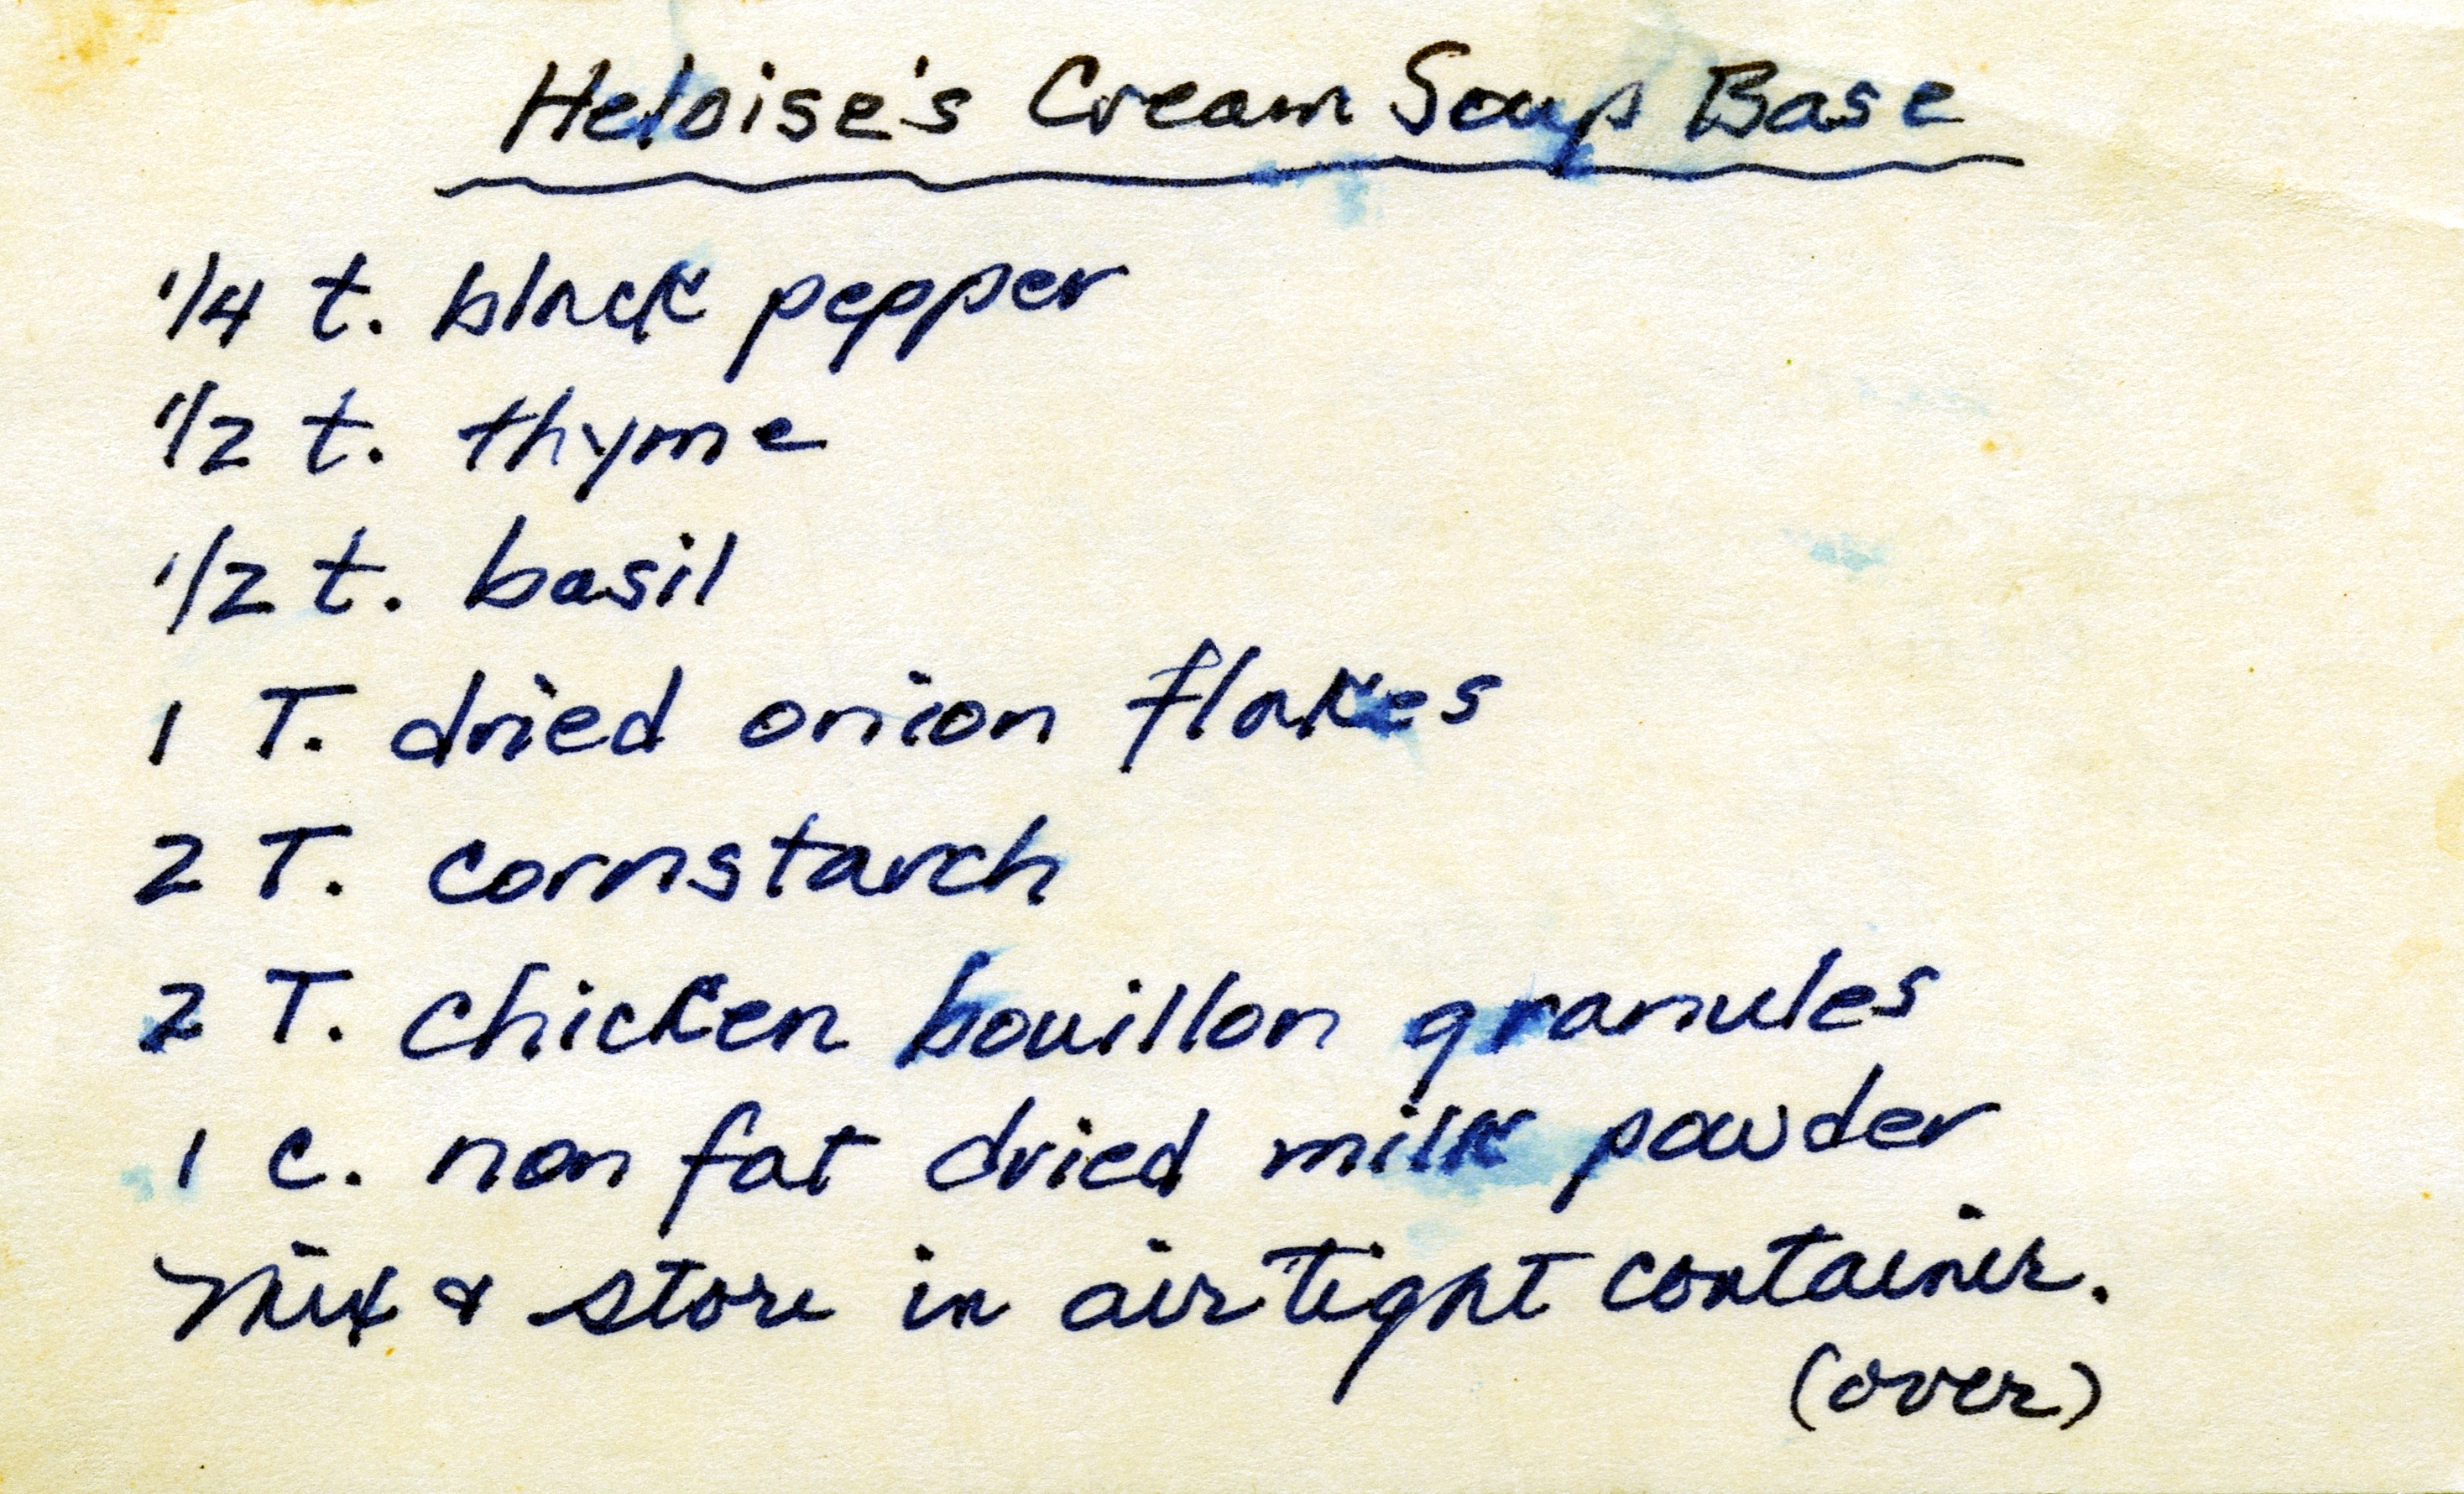 Heloise's Cream Soup Base
1/4 t. black pepper
1/2 t. thyme
1/2 t. basil
1 T. dried onion flakes
2 T. cornstarch
2 T. chicken bouillon granules
1 c. non fat dried milk powder
Mix & store in air tight container.
(over)